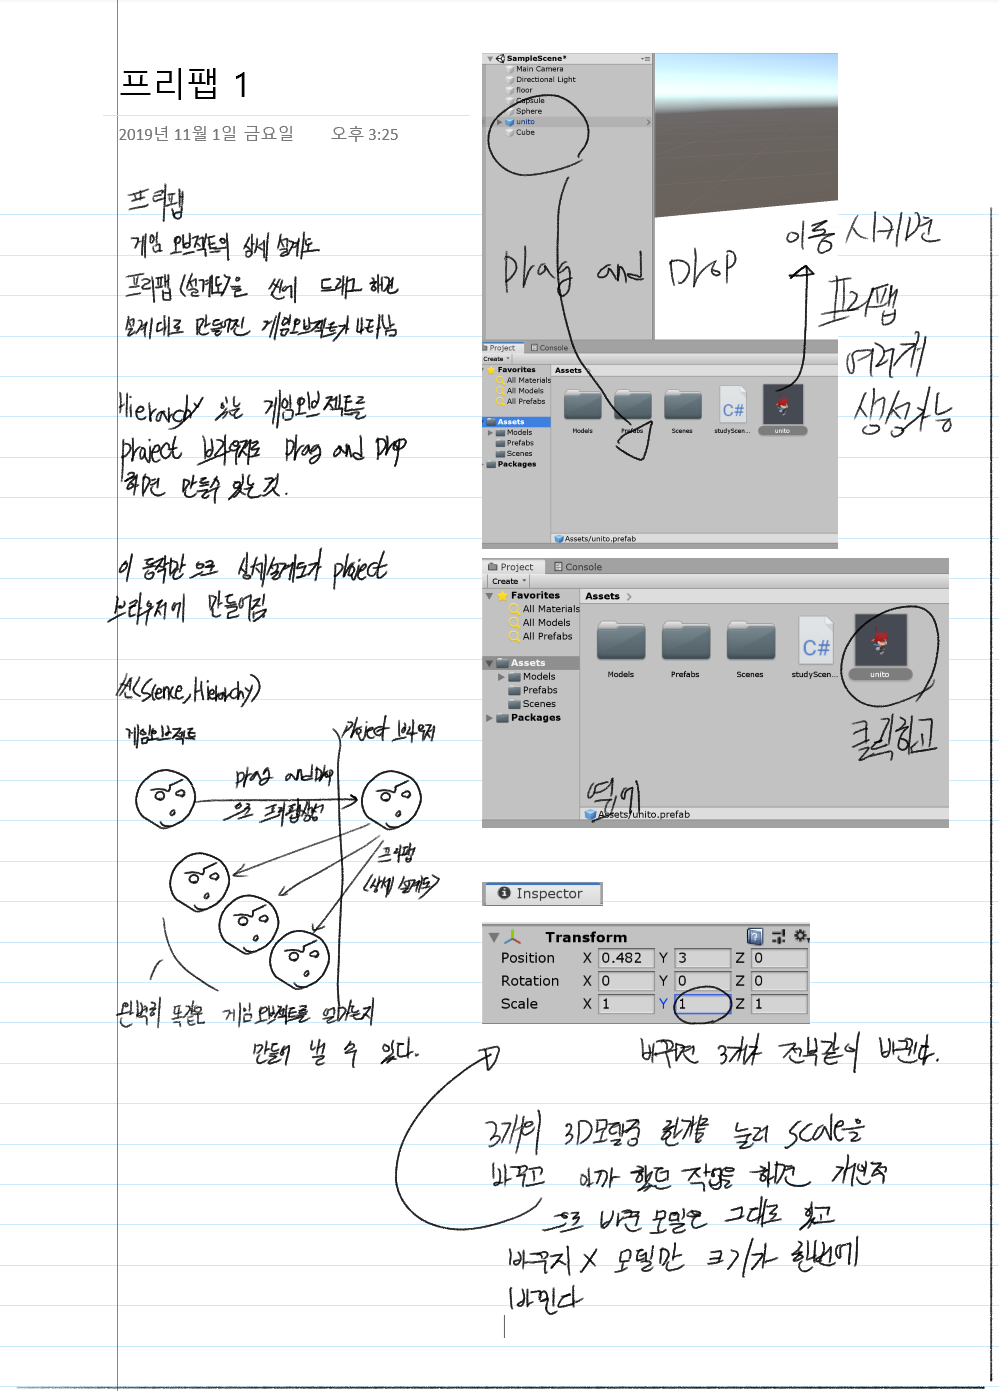 프리팹 1
2019년 11월 1일 금요일 오후 3:25
프리팹
게임 오브젝트의 상세 설계도
프리팹(설계도)을 씬에 드래그 하면
설계대로 만들어진 게임오브젝트가 나타남
Hierarchy 있는 게임오브젝트를
project 브라우저로 Drag and Drop
하면 만들수 있는 것.
이 동작만으로 상세설계도가 project
브라우저에 만들어짐
씬(Scence, Hierarchy)
게임오브젝트
Project 브라우저
Drag and Drop
으로 프리팹생성
프리팹
(상세 설계도)
완벽히 똑같은 게임 오브젝트를 얼마든지
만들어 낼 수 있다.
SampleScene*
Main Camera
Directional Light
floor
Capsule
Sphere
unito
Cube
Drag and Drop
이동 시키면
프리팹
여러개
생성가능
Project
Console
Create
Favorites
All Materials
All Models
All Prefabs
Assets
Models
Prefabs
Scenes
Packages
Assets
Models
Prefabs
Scenes
C#
studyScen...
unito
Assets/unito.prefab
Project
Console
Create
Favorites
All Materials
All Models
All Prefabs
Assets
Models
Prefabs
Scenes
Packages
Assets
Models
Prefabs
Scenes
C#
studyScen...
unito
클릭하고
옆에
Assets/unito.prefab
Inspector
Transform
Position X 0.482 Y 3 Z 0
Rotation X 0 Y 0 Z 0
Scale X 1 Y 1 Z 1
바꾸면 3개가 전부같이 바뀐다.
3개의 3D모델중 한개를 눌러 Scale을
바꾸고 아까 했던 작업을 하면 개인적
으로 바꾼 모델은 그대로 있고
바꾸지 X 모델만 크기가 한번에
바뀐다